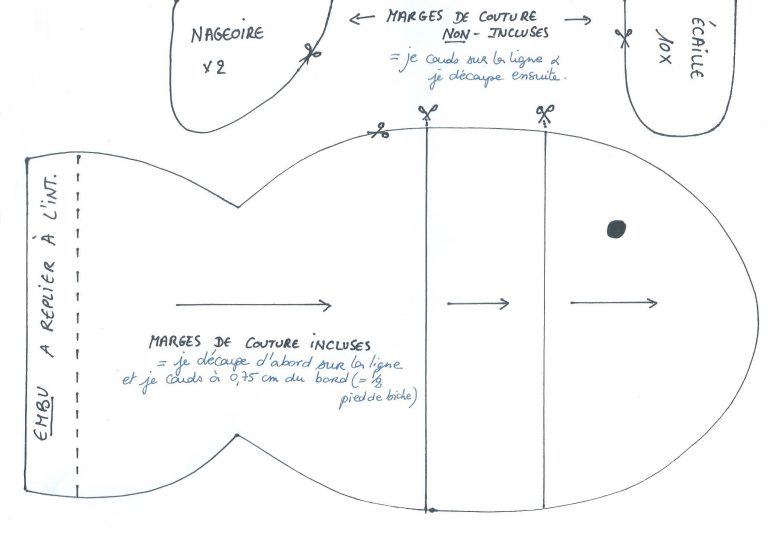 NAGEOIRE
x2
MARGES DE COUTURE
NON - INCLUSES
= je couds sur la ligne &
je découpe ensuite.
ÉCAILLE
10X
EMBU A REPLIER À L'INT.
MARGES DE COUTURE INCLUSES
= je découpe d'abord sur la ligne
et je couds à 0,75 cm du bord (= 1/2
pied de biche)